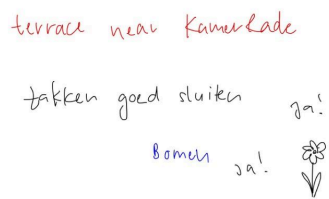 terrace near Kamerkade
takken goed sluiten
ja!
Bomen
ja!